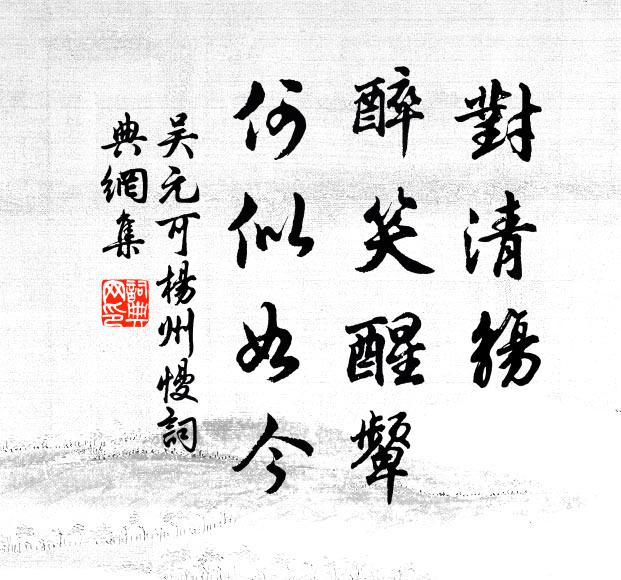 對清觴
醉笑醒顰
何似如今
吴元可楊州慢詞
典網集
詞典
网印